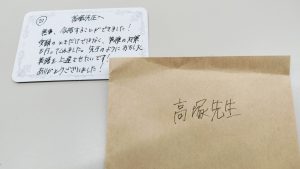 高塚先生へ
無事、合格することができました!
受験のときだけではなく、英検の対策
も行ってくれました。先生のようにカもし
英語を上達させたいです!
ありがとうございました!
高塚先生